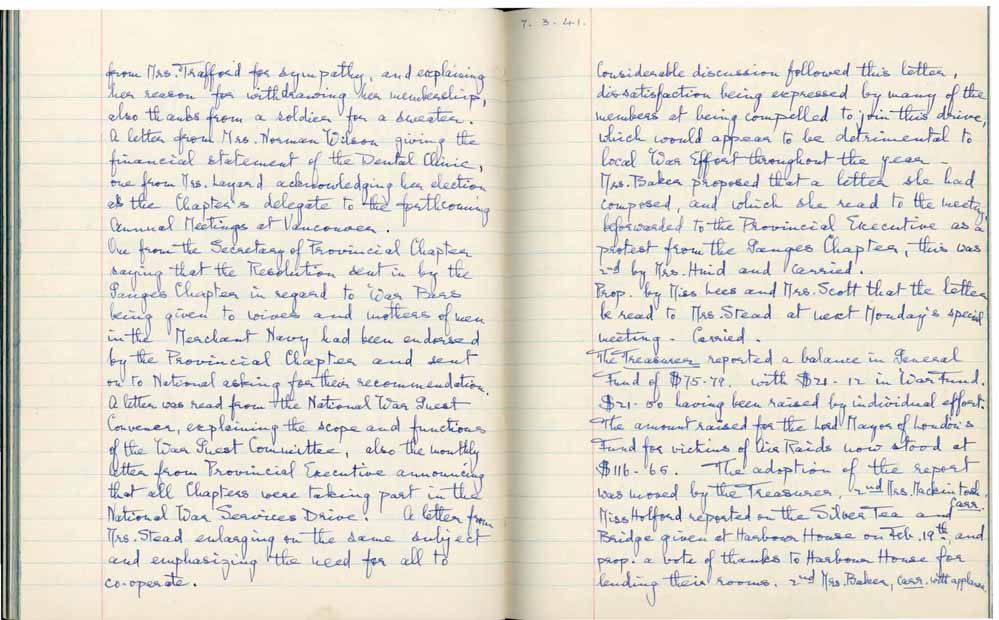 7. 3. 41.
from Mrs. Trafford for sympathy, and explaining
her reason for withdrawing her membership,
also thanks from a soldier for a sweater.
A letter from Mrs. Norman Wilson giving the
financial statement of the Dental Clinic,
one from Mrs. Layard acknowledging her election
as the Chapter's delegate to the forthcoming
Annual Meetings at Vancouver.
One from the Secretary of Provincial Chapter
saying that the Resolution sent in by the
Ganges Chapter in regard to War Bars
being given to wives and mothers of men
in the Merchant Navy had been endorsed
by the Provincial Chapter and sent
on to National asking for their recommendation.
A letter was read from the National War Guest
Convener, explaining the scope and functions
of the War Guest Committee, also the monthly
letter from Provincial Executive announcing
that all Chapters were taking part in the
National War Services Drive. A letter from
Mrs. Stead enlarging on the same subject
and emphasizing the need for all to
co-operate.
Considerable discussion followed this letter,
dissatisfaction being expressed by many of the
members at being compelled to join this drive,
which would appear to be detrimental to
local War Effort throughout the year -
Mrs. Baker proposed that a letter she had
composed, and which she read to the meeting,
be forwarded to the Provincial Executive as a
protest from the Ganges Chapter, this was
2nd by Mrs. and carried.
Prop. by Miss Lees and Mrs. Scott that the letter
be read to Mrs. Stead at next Monday's special
meeting - Carried.
The Treasurer reported a balance in General
Fund of $75-79. with $21-12 in War Fund.
$21-50 having been raised by individual effort.
The amount raised for the Lord Mayor of London's
Fund for victims of Air Raids now stood at
$116-65. The adoption of the report
was moved by the Treasurer, 2nd Mrs. Mackintosh.
Carr.
Miss Holford reported on the Silver Tea and
Bridge given at Harbour House on Feb. 19th, and
prop. a vote of thanks to Harbour House for
lending their rooms. 2nd Mrs. Baker, carr. with applause.